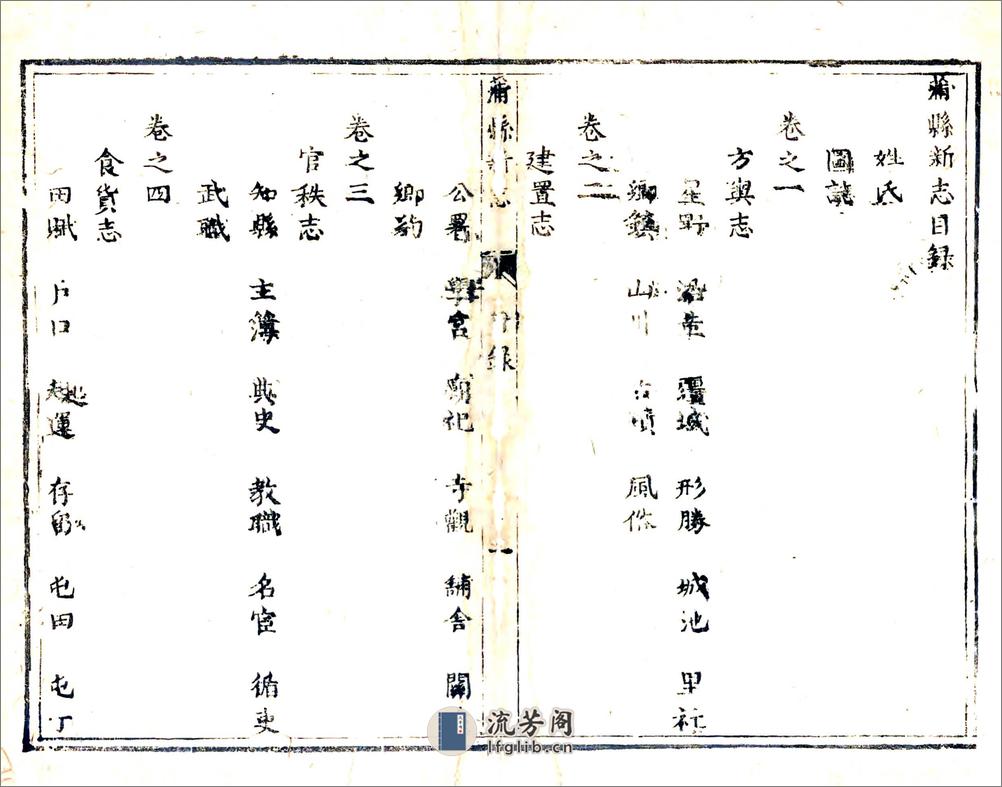 蒲縣新志目録
姓氏
圖誌
卷之一
方輿志
星野 疆域 形勝 城池 里社
鄉鎮 山川 古墳 風俗
卷之二
建置志
蒲縣新志 目錄 一
公署 學宮 廟祀 寺觀 舖舍 關
鄉約
卷之三
官秩志
知縣 主簿 典史 教職 名宦 循吏
武職
卷之四
食貨志
田賦 戶口 起運 存留 屯田 屯丁
流芳阁
lfglib.cn